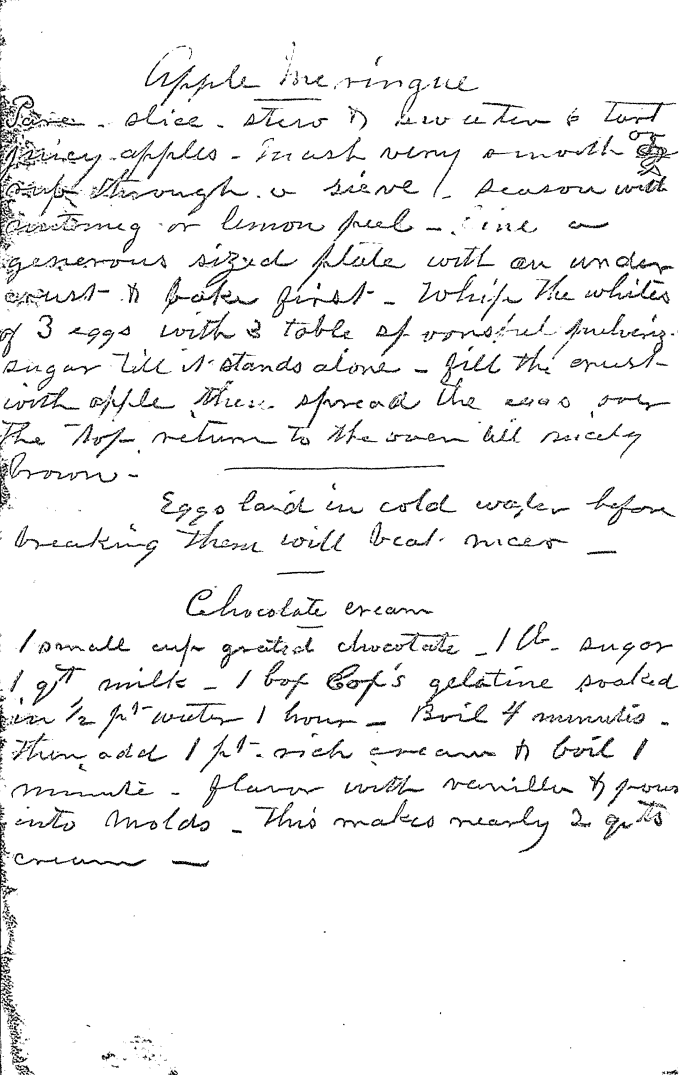 Apple Meringue
Pare - slice - stew & sweeten 6 tart
juicy apples - mash very smooth or
rub through a sieve - season with
nutmeg or lemon peel - Line a
generous sized plate with an under
crust & bake first - Whip the whites
of 3 eggs with 3 table spoonsful pulveriz.
sugar till it stands alone - fill the crust
with apple then spread the eggs over
the top return to the oven till nicely
brown -
Eggs laid in cold water before
breaking them will beat nicer -
Chocolate cream
1 small cup grated chocolate - 1 lb. sugar
1 qt milk - 1 box Cox's gelatine soaked
in 1/2 pt water 1 hour - Boil 4 minutes -
then add 1 pt. rich cream & boil 1
minute - flavor with vanilla & pour
into molds - This makes nearly 2 qts
cream -